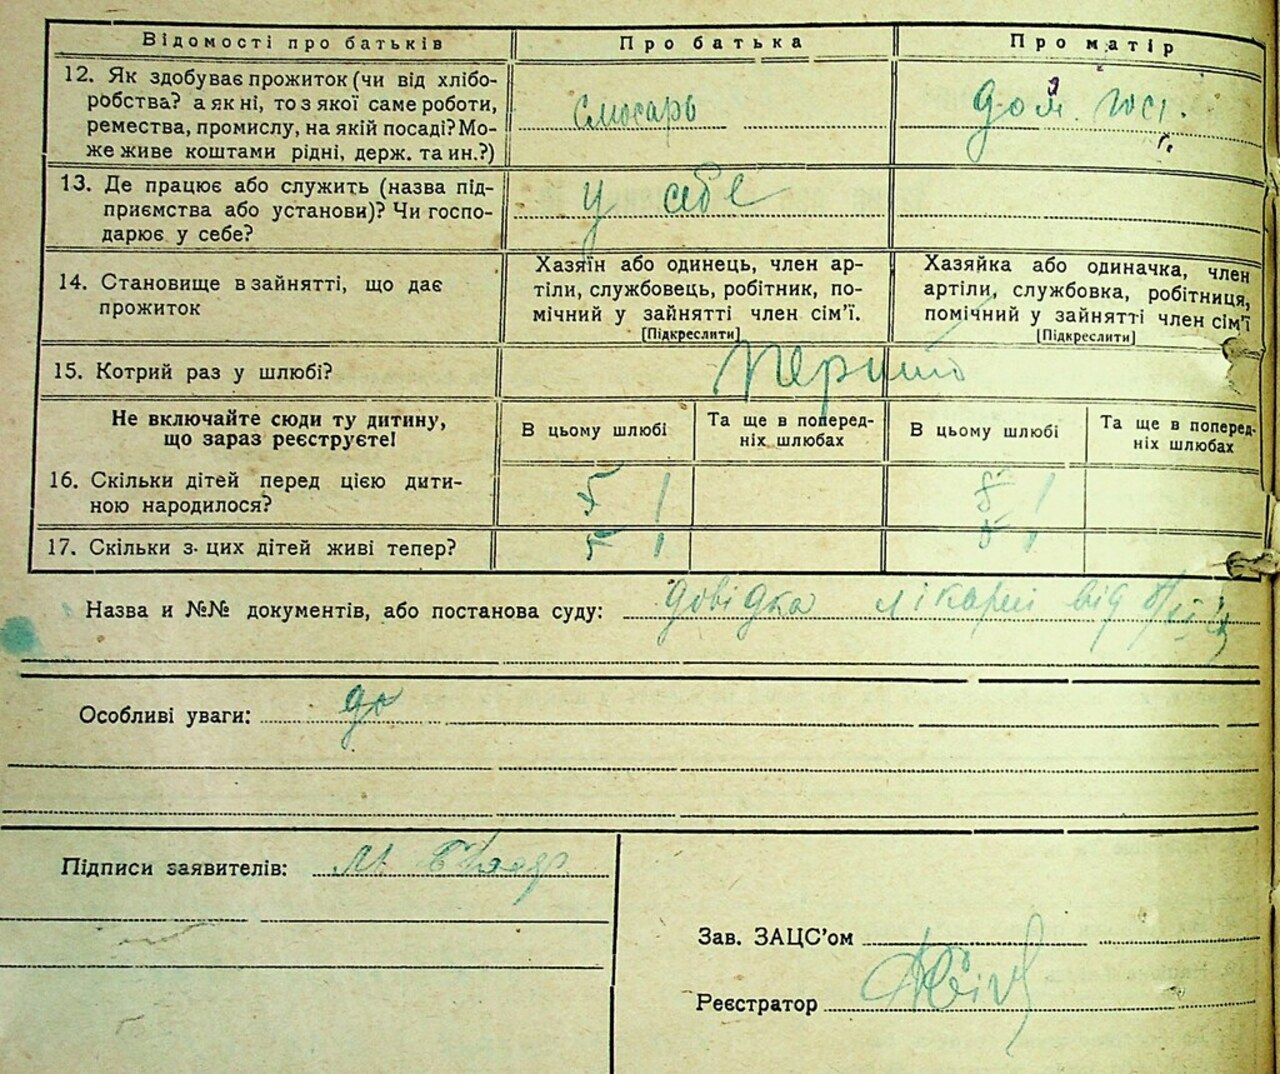 Відомості про батьків Про батька Про матір
12. Як здобуває прожиток (чи від хлібо-
робства? а як ні, то з якої саме роботи,
ремества, промислу, на якій посаді? Мо-
же живе коштами рідні, держ. та ин.?)
слюсарь дом. гос.
13. Де працює або служить (назва під-
приємства або установи)? Чи госпо-
дарює у себе?
у себе
14. Становище в зайнятті, що дає
прожиток
Хазяїн або одинець, член ар-
тіли, службовець, робітник, по-
мічний у зайнятті член сім’ї.
[Підкреслити]
Хазяйка або одиначка, член
артіли, службовка, робітниця,
помічний у зайнятті член сім’ї
[Підкреслити]
15. Котрий раз у шлюбі?
Не включайте сюди ту дитину,
що зараз реєструєте!
В цьому шлюбі
Та ще в поперед-
ніх шлюбах
В цьому шлюбі
Та ще в поперед-
ніх шлюбах
16. Скільки дітей перед цією дити-
ною народилося?
17. Скільки з цих дітей живі тепер?
Назва и №№ документів, або постанова суду: довідка лікарні від
Особливі уваги:
Підписи заявителів:
Зав. ЗАЦС’ом
Реєстратор